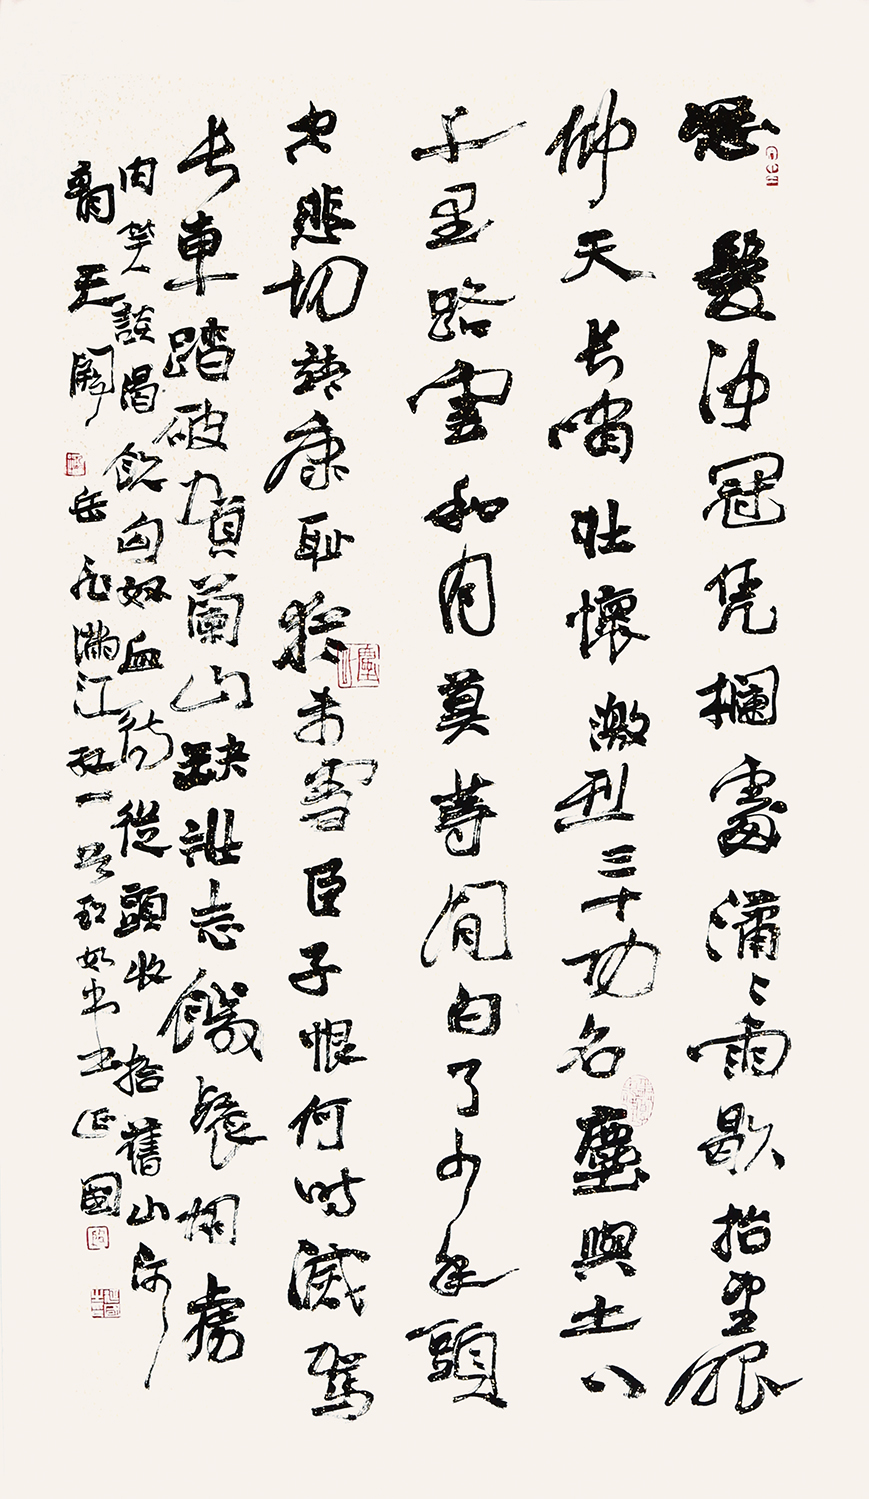 怒髮沖冠凭欄處瀟々雨歇抬望眼
仰天长嘯壯懷激烈三十功名塵與土八
千里路雲和月莫等閒白了少年頭
空悲切靖康恥猶未雪臣子恨何時滅駕
长車踏破賀蘭山缺壯志饑餐胡虜
肉笑談渴飲匈奴血待從頭收拾舊山河
朝天闕 岳飛滿江紅一首 國